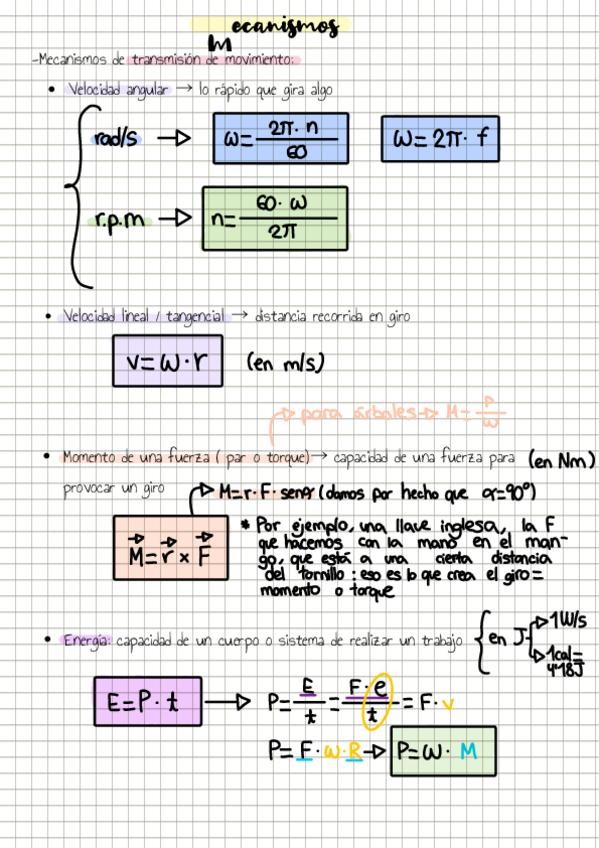 Mecanismos
-Mecanismos de transmisión de movimiento:
• Velocidad angular → lo rápido que gira algo
rad/s → ω = 2π · n / 60   ω = 2π · f
r.p.m → n = 60 · ω / 2π
• Velocidad lineal / tangencial → distancia recorrida en giro
v = ω · r (en m/s)
para árbales → M = P / ω
• Momento de una fuerza ( par o torque) → capacidad de una fuerza para (en Nm)
provocar un giro → M = r · F · senα (damos por hecho que α=90º)
M = r × F
* Por ejemplo, una llave inglesa, la F
que hacemos con la mano en el man-
go, que está a una cierta distancia
del tornillo : eso es lo que crea el giro =
momento o torque
• Energía: capacidad de un cuerpo o sistema de realizar un trabajo { en J → 1W/s
→ 1cal = 4'18J
E = P · t → P = E / t = F · e / t = F · v
P = F · ω · R → P = ω · M